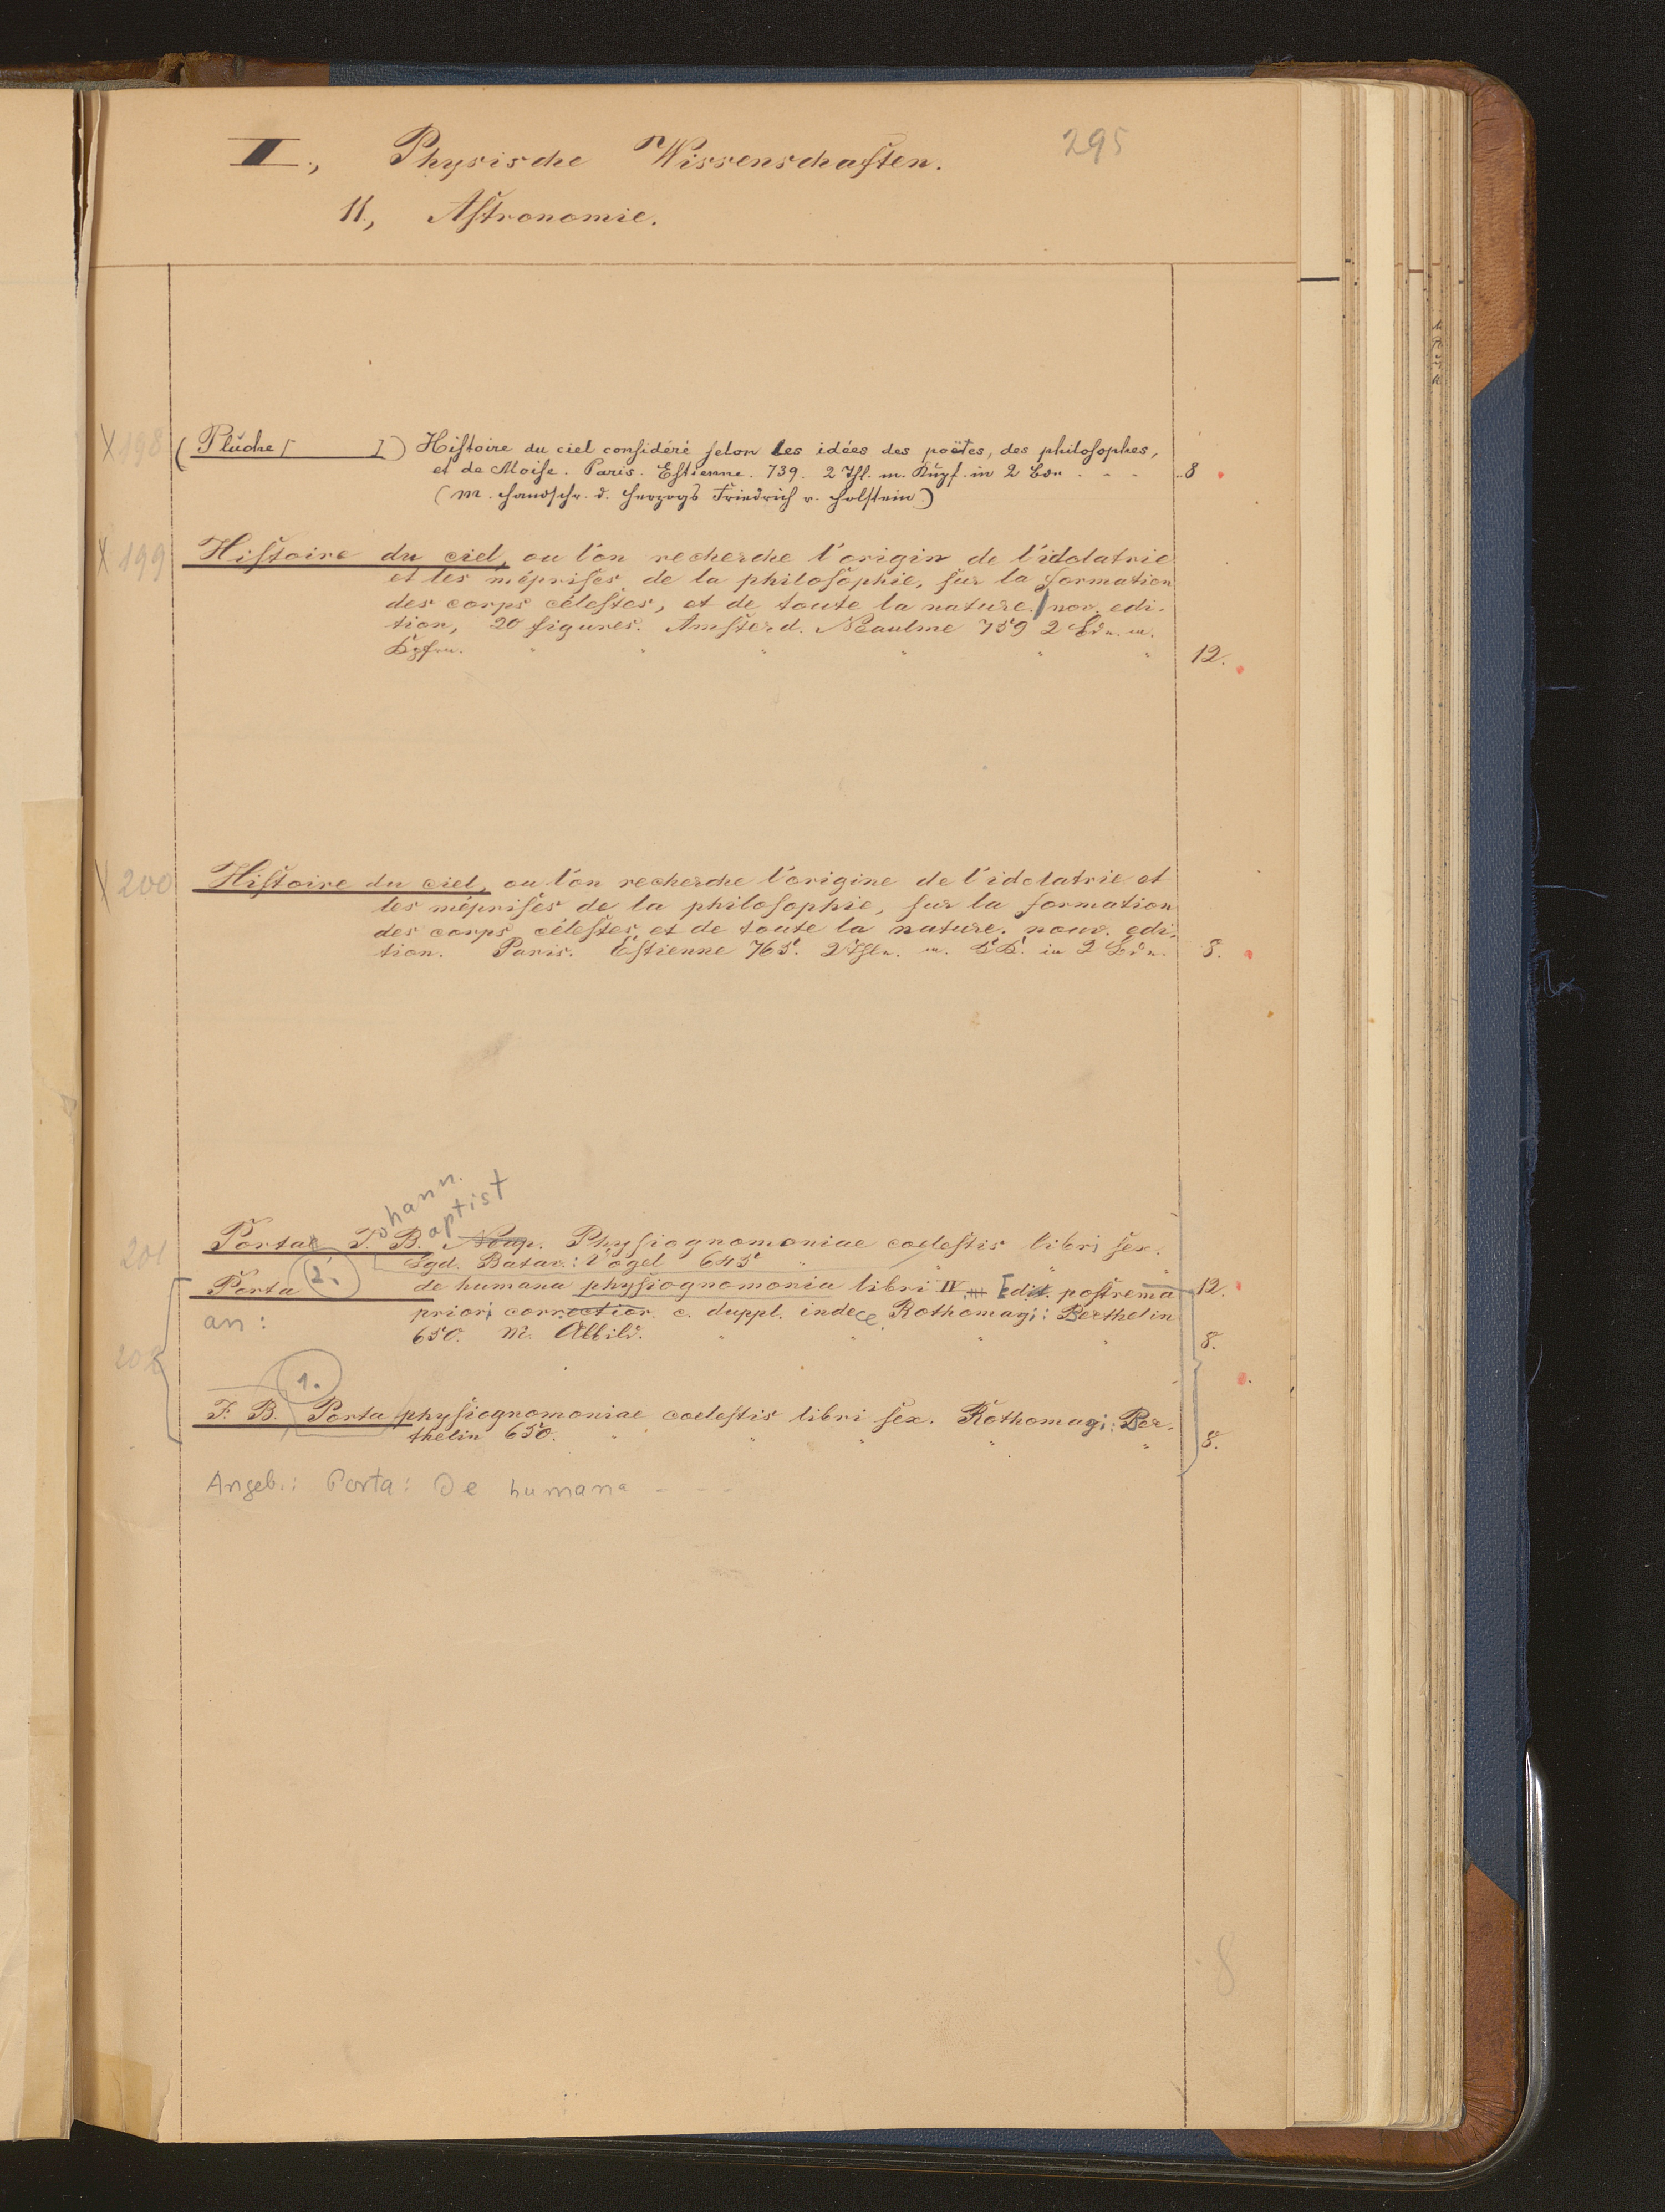 295
II., Physische Wissenschaften.
11., Aſtronomie.
X 198 (Plüche [ ]) Hiſtoire du ciel conſidéré ſelon les idées des poëtes, des philoſophes,
et de Moiſe. Paris. Eſtienne. 739. 2 Thl. m. Kupf. in 2 Bdn. - - 8
(m. Handſchr. d. Herzogs Friedrich v. Holſtein)
X 199 Hiſtoire du ciel, ou l'on recherche l'origin de l'idolatrie
et les mépriſes de la philoſophie, ſur la formation
des corps céleſtes, et de toute la nature. / nov. edi-
tion, 20 figures. Amſterd. Neaulme 759 2 Bdn. m.
Kpfrn. " " " " " " 12.
X 200 Hiſtoire du ciel, ou l'on recherche l'origine de l'idolatrie et
les mépriſes de la philoſophie, ſur la formation
des corps céleſtes et de toute la nature. nouv. edi-
tion. Paris. Eſtienne 765. 2 Thle. m. KK. in 2 Bdn. 8.
ohann. aptist
201 Porta J. B. Neap. Phyſiognomoniae coeleſtis libri ſex.
Lgd. Batav.: Vogel 645 " " " 12.
Porta 2. de humana phyſiognomonia libri IV, Edit. poſtrema
an: priori correctior c. duppl. indece Rothomagi: Berthelin
650. m. Abbild. " " " " 8.
202
1.
J. B. Porta phyſiognomoniae coeleſtis libri ſex. Rothomagi: Ber-
thelin 650. " " " " " 8.
Angeb.: Porta: De humana - - -
8